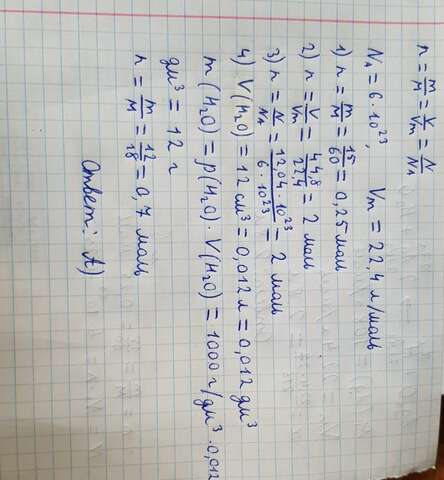 n = m/M = V/Vm = N/NA
NA = 6 · 10²³, Vm = 22,4 л/моль
1) n = m/M = 15/60 = 0,25 моль
2) n = V/Vm = 44,8/22,4 = 2 моль
3) n = N/NA = 12,04 · 10²³/6 · 10²³ = 2 моль
4) V(H₂O) = 12 см³ = 0,012 л = 0,012 дм³
m(H₂O) = ρ(H₂O) · V(H₂O) = 1000 г/дм³ · 0,012
дм³ = 12 г
n = m/M = 12/18 = 0,7 моль
Ответ: А)